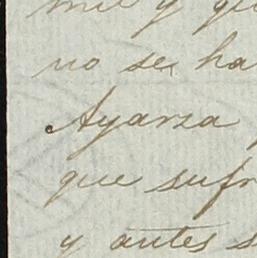 mil y qu
no se ha
Ayarza
que sufr
y antes s